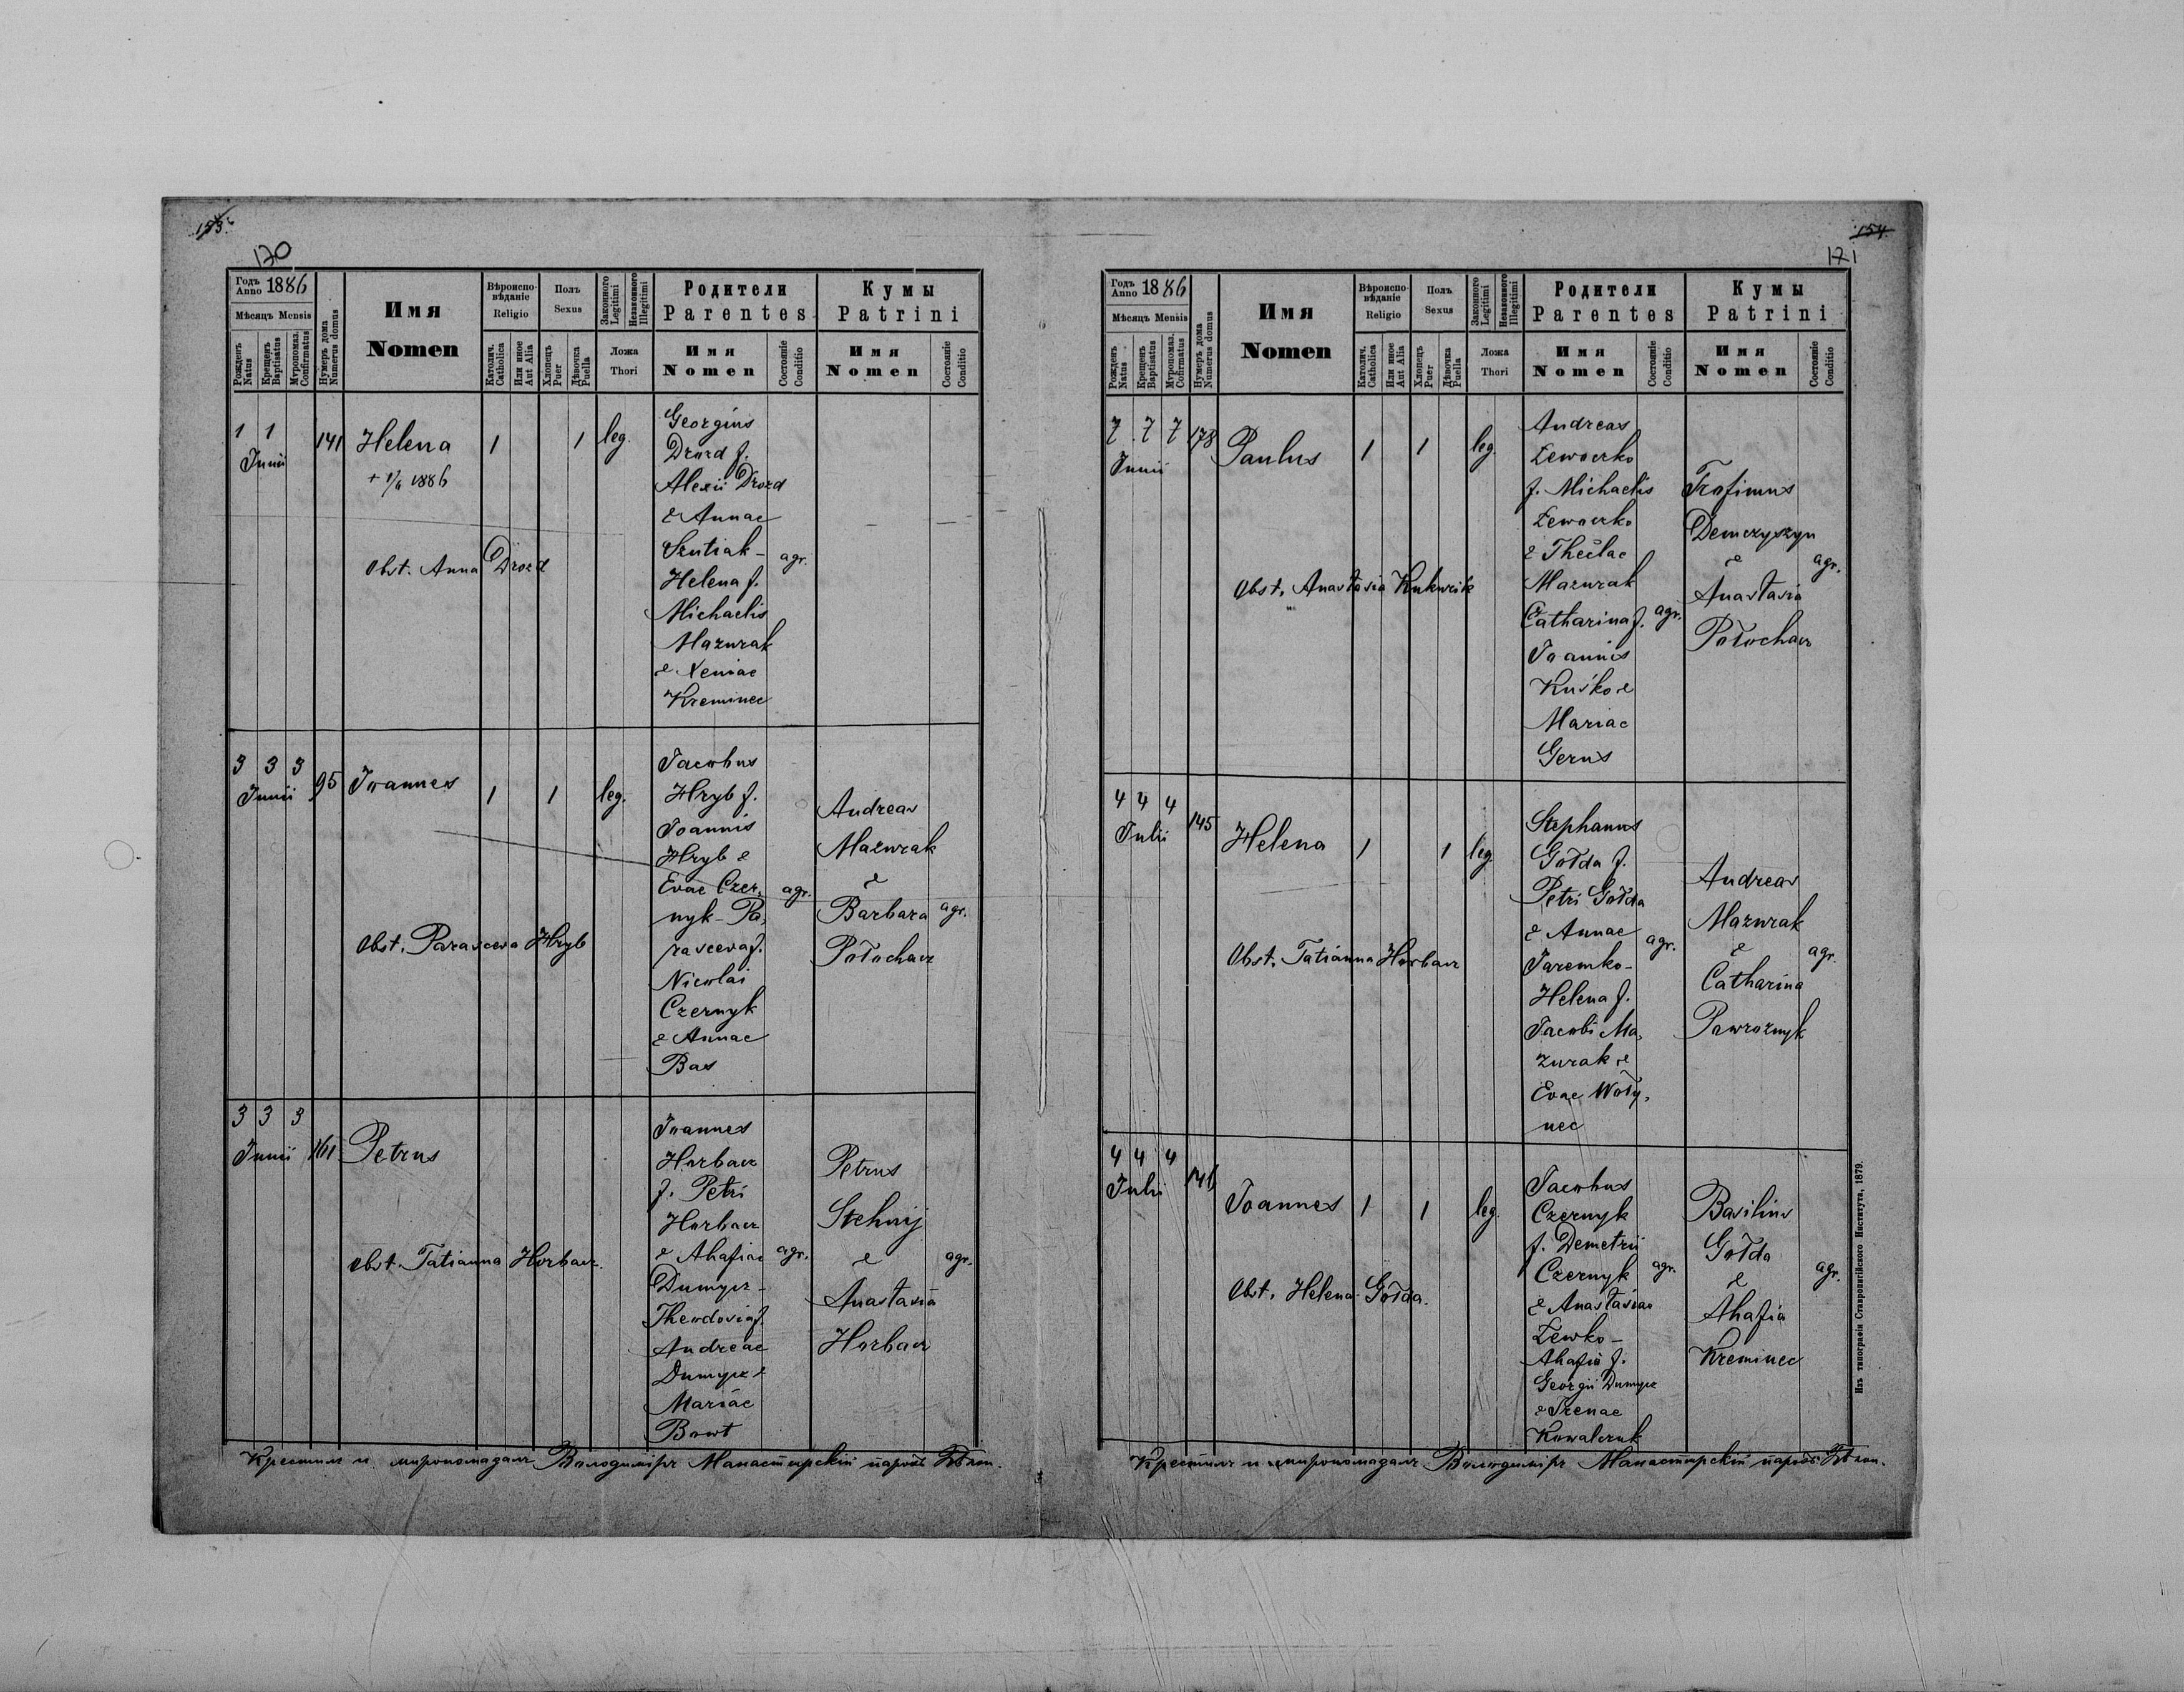 153.
170
Годъ
Anno 1886
Мѣсяцъ Mensis
Рожденъ
Natus
Крещенъ
Baptisatus
Мѵропомаз.
Confirmatus
Нумеръ дома
Numerus domus
Имя
Nomen
Вѣроиспо-
вѣданіе
Religio
Католич.
Catholica
Или иное
Aut Alia
Полъ
Sexus
Хлопецъ
Puer
Дѣвочка
Puella
Законного
Legitimi
Незаконного
Illegitimi
Ложа
Thori
Родители
Parentes
Имя
Nomen
Состояніе
Conditio
Кумы
Patrini
Имя
Nomen
Состояніе
Conditio
1 1
Junii
141
Helena
+ 1/6 1886
Obst. Anna Drozd
1
1
leg.
Georgius
Drozd f.
Alexii Drozd
& Annae
Szutiak –
Helena f.
Michaelis
Mazurak
& Xeniae
Kreminec
agr.
3 3 3
Junii
95
Joannes
Obst. Parasceva Hryb
1
1
leg.
Jacobus
Hryb f.
Joannis
Hryb &
Evae Czer,
nyk – Pa,
rasceva f.
Nicolai
Czernyk
& Annae
Bas
agr.
Andreas
Mazurak
&
Barbara
Połochacz
agr.
3 3 3
Junii
161
Petrus
obst. Tatianna Horbacz.
Joannes
Horbacz
f. Petri
Horbacz
& Ahafiae
Dumycz –
Theodosia f.
Andreae
Dumycz &
Mariae
Bowt
agr.
Petrus
Stehnij
&
Anastasia
Horbacz
agr.
Крестилъ и миропомазалъ Володиміръ Манастирскій парохъ
154.
171
Годъ
Anno 1886
Мѣсяцъ Mensis
Рожденъ
Natus
Крещенъ
Baptisatus
Мѵропомаз.
Confirmatus
Нумеръ дома
Numerus domus
Имя
Nomen
Вѣроиспо-
вѣданіе
Religio
Католич.
Catholica
Или иное
Aut Alia
Полъ
Sexus
Хлопецъ
Puer
Дѣвочка
Puella
Законного
Legitimi
Незаконного
Illegitimi
Ложа
Thori
Родители
Parentes
Имя
Nomen
Состояніе
Conditio
Кумы
Patrini
Имя
Nomen
Состояніе
Conditio
7 7 7
Junii
178
Paulus
Obst. Anastasia
1
1
leg.
Andreas
Zewoczko
f. Michaelis
Zewoczko
& Theclae
Mazurak
Catharina f.
Joannis
Kuśko &
Mariae
Gerus
agr.
Trofimus
Demczyszyn
&
Anastasia
Połochacz
agr.
4 4 4
Julii
145
Helena
Obst. Tatianna Horbacz
1
1
leg.
Stephanus
Gołda f.
Petri Gołda
& Annae
Jaremko –
Helena f.
Jacobi Ma,
zurak &
Evae Woły,
nec
agr.
Andreas
Mazurak
&
Catharina
Pawroznyk
agr.
4 4 4
Julii
146
Joannes
Obst. Helena Gołda.
1
1
leg.
Jacobus
Czernyk
f. Demetrii
Czernyk
& Anastasiae
Zewko –
Ahafia f.
Georgii Dumycz
& Irenae
Kowalczuk
agr.
Basilius
Gołda
&
Ahafia
Kreminec
agr.
Крестилъ и миропомазалъ Володиміръ Манастирскій парохъ
Изъ типографіи Ставропигійского Института, 1879.